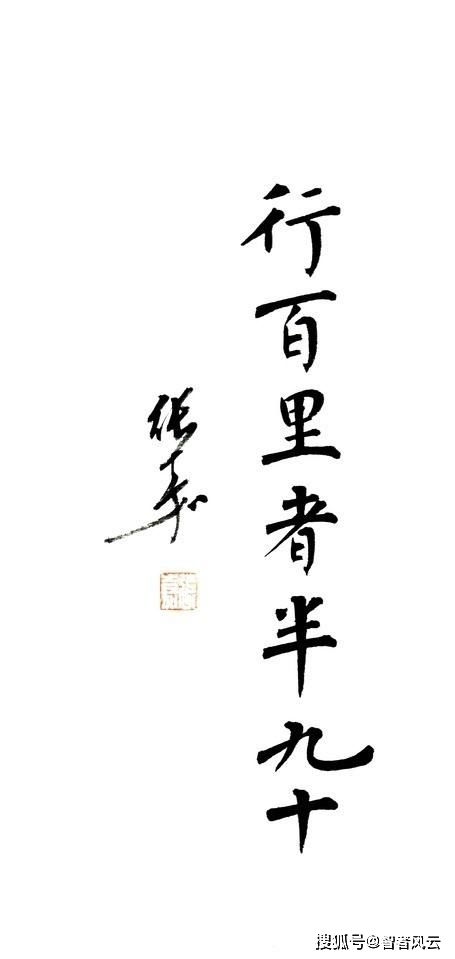 行百里者半九十
搜狐号@智者风云